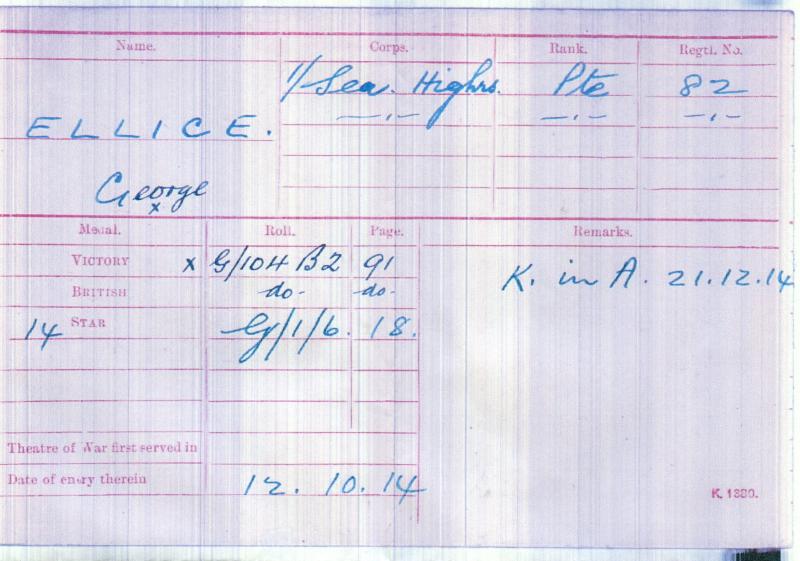 Name. Corps. Rank. Regtl. No.
1/Sea. Highrs. Pte 82
ELLICE. —,,— —,,— —,,—
George
x
Medal. Roll. Page. Remarks.
VICTORY x G/104 B2 91 K. in A. 21.12.14
BRITISH -do- -do-
14 STAR G/1/6. 18.
Theatre of War first served in
Date of entry therein 12. 10. 14
K. 1380.